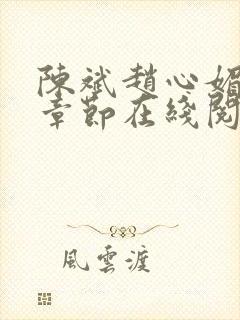 陳斌趙心媚
章節在綫閱
風雲渡